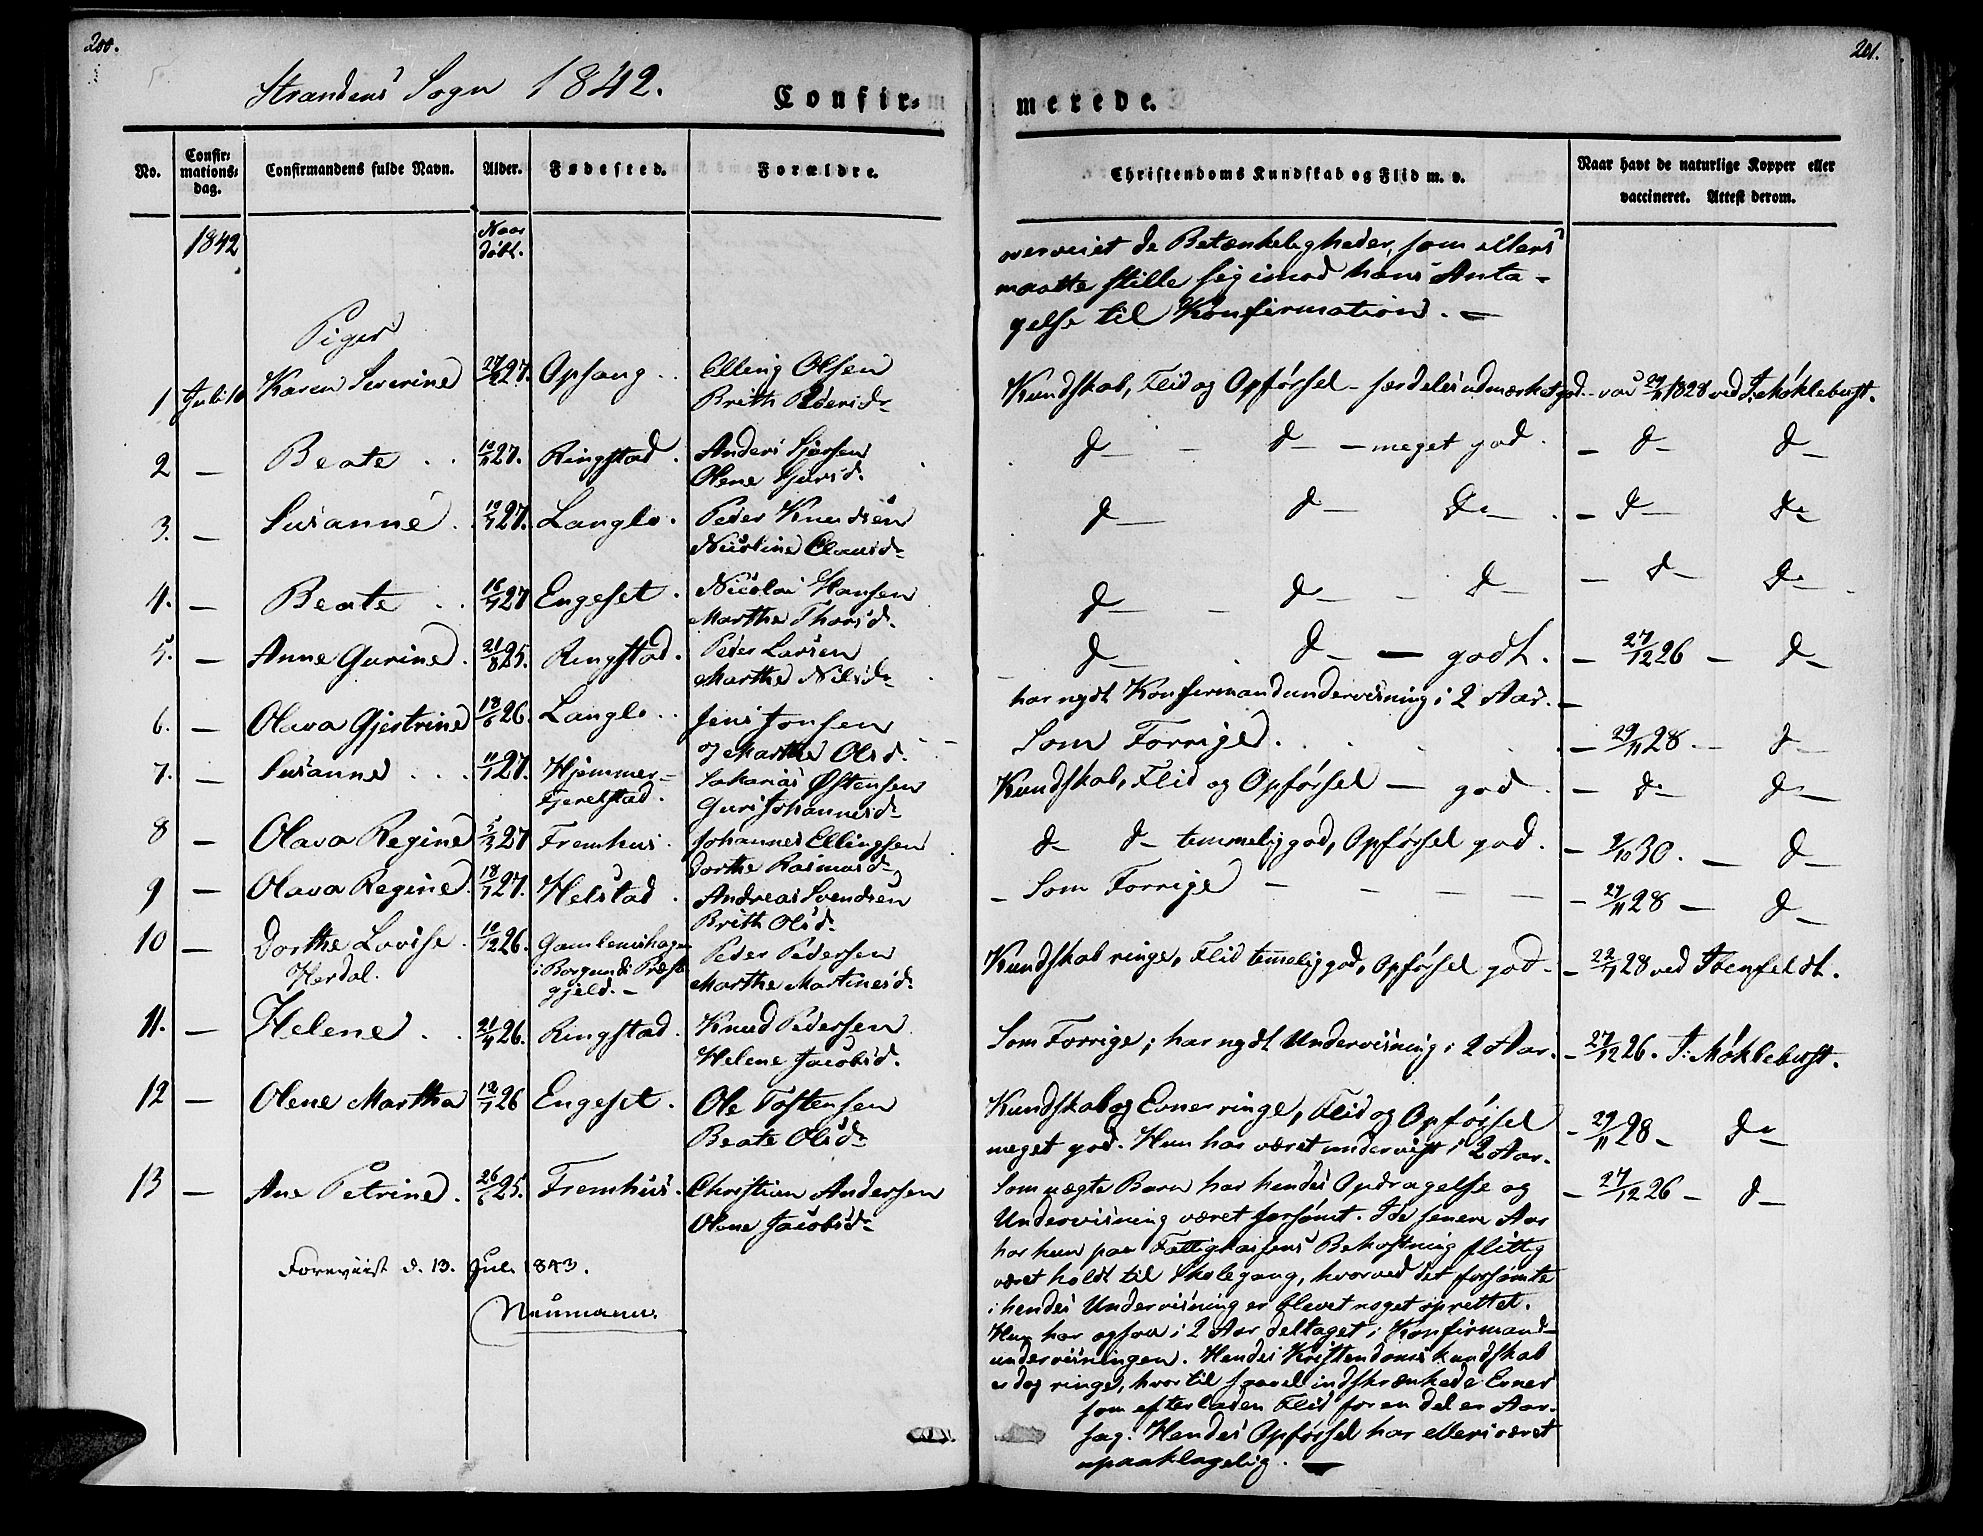 200.
Strandens Sogn 1842.
Confir-
No.
Confir-
mations-
dag.
Confirmandens fulde Navn.
Alder.
Fødested.
Forældre.
1842
Naar
døbt.
Piger
1 Juli 10 Karen Severine 27. Opsang Elling Olsen
Brith Pedersd.
2 — Beate 27. Ringstad. Anders
Olene
3. — Susanne 27. Langlo. Peder Knudsen
Nicoline Clausd.
4. — Beate 27 Engeset. Nicolai Hansen
Marthe Thorsd.
5. — Anne Gurine. 21/8 25. Ringstad. Peder Larsen
Marthe Nilsd.
6. — Olava Gjertrine 18/6 26. Langlo. Jens Jonsen
og Marthe Olsd.
7. — Susanne 27. Hjemmer-
Fjerelstad. Sakarias Østensen
Guri Johannesd.
8 — Olava Regine 5/3 27 Fremhus. Johannes Ellingsen
Dorthe Rasmusd.
9 — Olava Regine. 27. Helstad. Andreas Svendsen
Brith Olsd.
10 — Dorthe Lovise 10/12 26. Peder Pedersen
Herdal. i Borgunds Præste-
gjeld. — Marthe Martinesd.
11. — Helene 26. Ringstad. Knud Pedersen
Helene Jacobsd.
12 — Olene Martha 26 Engeset. Ole Tostensen
Beate Olsd.
13 — Ane Petrine. 26/6 25. Fremhus. Christian Andersen
Olene Jacobsd.
Foreviist d. 13. Jul. 1843.
Neumann.
201.
merede.
Christendoms Kundskab og Flid m. v.
Naar havt de naturlige Kopper eller
vaccineret. Attest derom.
overveiet de Betænkeligheder, som ellers
maatte stille sig imod hans Anta-
gelse til Konfirmation. —
Kundskab, Flid og Opførsel — særdeles udmærket god. — vac 29/11 1828 ved J. Møklebust.
d— d— — meget god. — d— d—
d— d— d— — d— d—
d— — d— — d— — d— d—
d— d— — godt. — 27/12 26 — d—
har nydt Konfirmandundervisning i 2 Aar. —
Som Forrige. — 29/11 28 — d—
Kundskab, Flid og Opførsel — god — d— d—
d— d— temmelig god, Opførsel god. — 9/10 30. — d—
— Som Forrige — — — — — 29/11 28 — d—
Kundskab ringe, Flid temelig god, Opførsel god. — 28 ved Ibenfeldt.
Som Forrige; har nydt Undervisning i 2 Aar. — 27/12 26. J. Møklebust.
Kundskab og Evner ringe, Flid og Opførsel
meget god. Hun har været undervist i 2 Aar. — 29/11 28 — d—
Som uægte Barn har hendes Opdragelse og — 27/12 26 — d—
Undervisning været forsømt. I de senere Aar
har hun paa Fattigkassens Bekostning flittig
været holdt til Skolegang, hvorved det forsømte
i hendes Undervisning er blevet noget oprettet.
Hun har ogsaa i 2 Aar deltaget i Konfirmand-
undervisningen. Hendes Kristendoms kundskab
er dog ringe, hvortil saavel indskrænkede Evner
som efterladen Flid for en del er Aar-
sag. Hendes Opførsel har ellers været
upaaklagelig. —